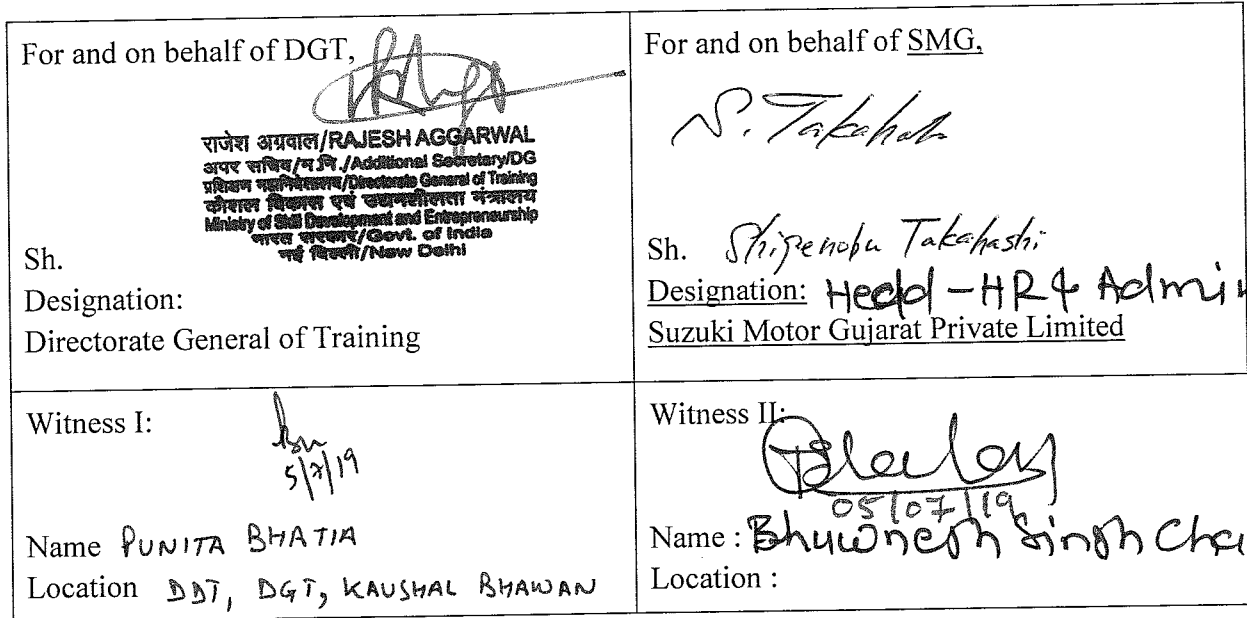 For and on behalf of DGT,
राजेश अग्रवाल/RAJESH AGGARWAL
अपर सचिव/म.नि./Additional Secretary/DG
प्रशिक्षण महानिदेशालय/Directorate General of Training
कौशल विकास एवं उद्यमशीलता मंत्रालय
Ministry of Skill Development and Entrepreneurship
भारत सरकार/Govt. of India
नई दिल्ली/New Delhi
Sh.
Designation:
Directorate General of Training
For and on behalf of SMG,
S. Takahashi
Sh. Shigenobu Takahashi
Designation: Head - HR & Admin
Suzuki Motor Gujarat Private Limited
Witness I:
5/7/19
Name PUNITA BHATIA
Location DDT, DGT, KAUSHAL BHAWAN
Witness II:
05/07/19
Name : Bhuwnesh Singh Cha
Location :